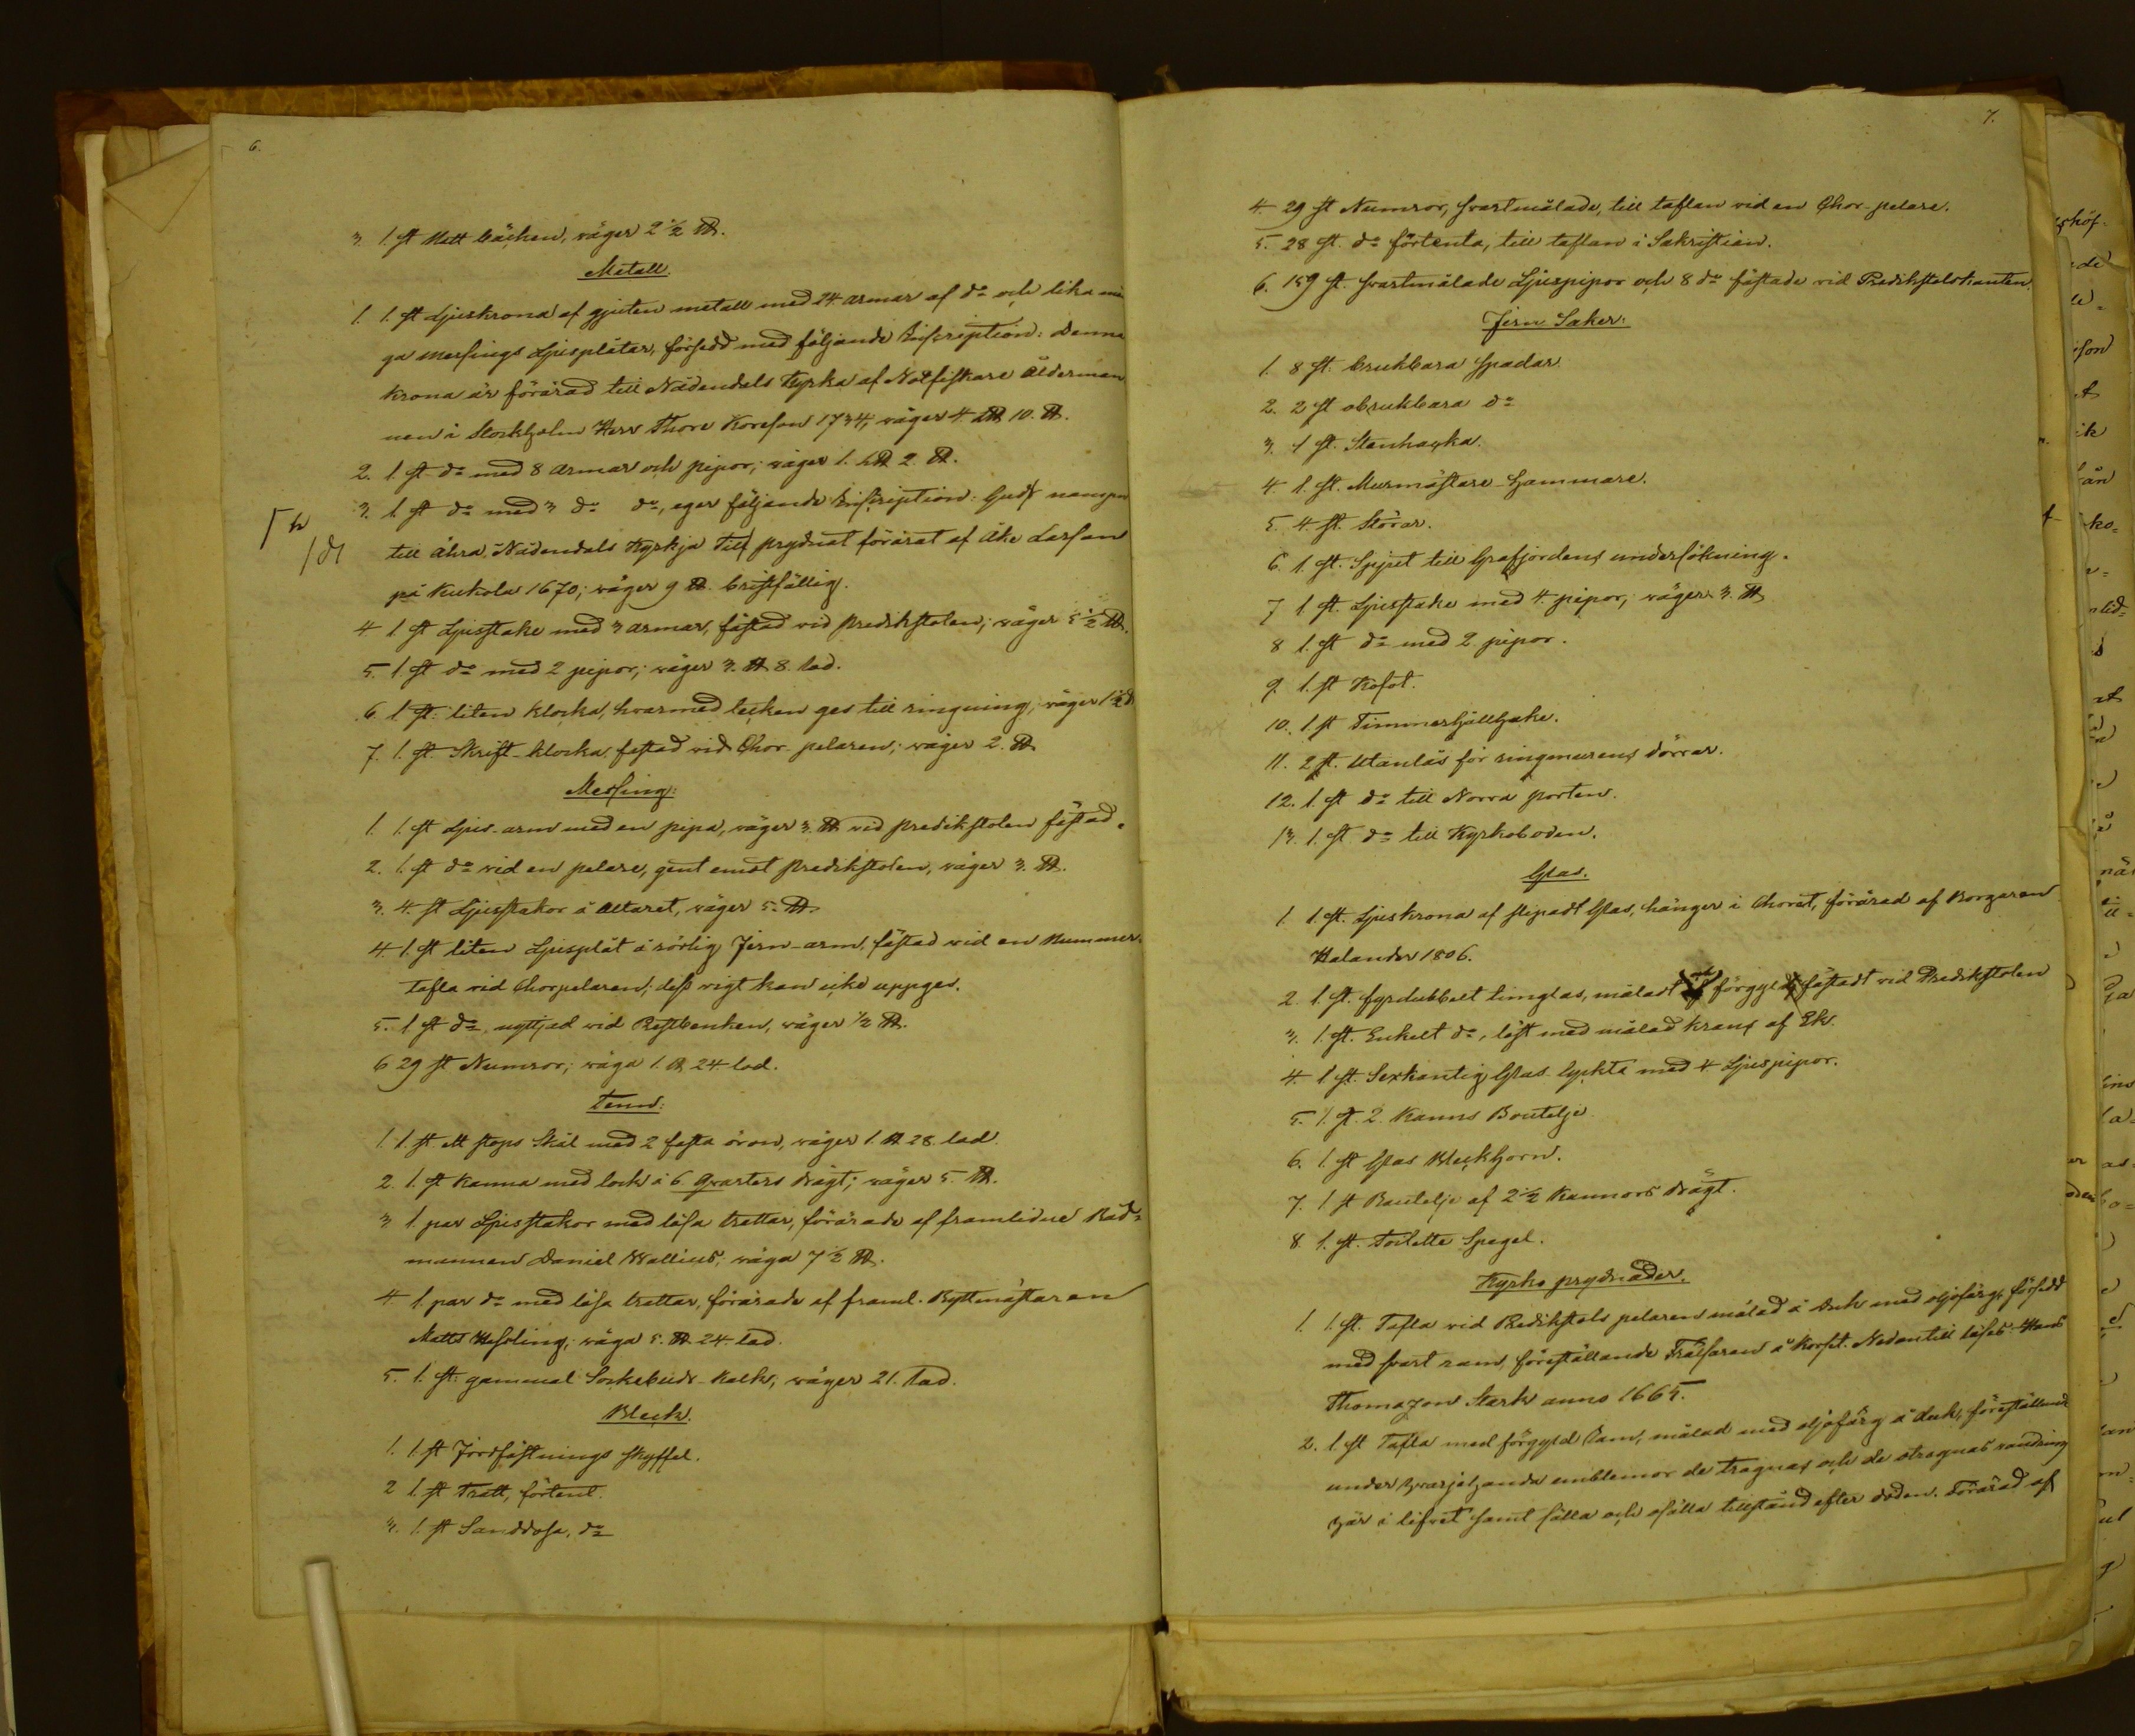 6.
3. 1. st Natt bäcken, väger 2 1/2 ℔.
Metall.
1. 1. st Ljuskrona af gjuten metall med 24 armar af do och lika mån
ga messings Ljusplåtar, försedd med följande Inscription: Denna
krona är förärad till Nådendals Kyrka af Notfiskare Ålderman
nen i Stockholm Herr Thore Koreson 1734; väger 4 L℔ 10. ℔.
2. 1. st do med 8 armar och pipor; väger 1. L℔ 2. ℔.
3. 1. st do med 3 do do, eger följande Inscription: Gudz nampn
till ähra, Nådendals Kyrkja till prydnat förärat af Åke Larsson
på Kukola 1670; väger 9 ℔. bristfällig.
4 1 st Ljusstake med 3 armar, fästad vid predikstolen; väger 5 1/2 ℔.
5. 1 st do med 2 pipor; väger 3. ℔ 8. lod.
6. 1 st. liten klocka, hvarmed tecken ges till ringning; väger 1 1/2 ℔
7. 1. st. Skrift-klocka, fästad vid Chor-pelaren; väger 2. ℔
Messing:
1. 1. st Ljus-arm med en pipa, väger 3. ℔ vid predikstolen fästad.
2. 1. st do vid en pelare, gent emot predikstolen, väger 3. ℔.
3. 4. st Ljusstakor å Altaret, väger 5. ℔.
4. 1. st liten Ljusplåt å rörlig Jern-arm, fästad vid en Nummer-
tafla vid Chorpelaren; dess vigt kan icke uppges.
5. 1 st do, nyttjad vid Restbänken, väger 1/2 ℔.
6 29 st Numror; väga 1. ℔ 24 lod.
Tenn:
1. 1 st ett stops Skål med 2 fasta öron, väger 1. ℔ 28. lod.
2. 1. st Kanna med lock å 6 Qvarters drägt; väger 5. ℔.
3 1. par Ljusstakor med lösa trattar, förärade af framlidne Råd-
mannen Daniel Wallius; väga 7 1/2 ℔.
4. 1. par do med lösa trattar, förärade af framl. Ryttmästaren
Matts Hesling; väga 5. ℔ 24. lod.
5. 1. st. gammal Sockebuds-Kalk; väger 21. lod.
Bleck.
1. 1 st Jordfästnings skyffel.
2 1. st Tratt, förtent.
3. 1. st Sanddosa, do
7.
4. 29 st Numror, svartmålade, till taflan vid en Chor-pelare.
5. 28 st. do förtenta, till taflan i Sakristian.
6. 159 st. svartmålade Ljuspipor och 8 do fästade vid Predikstolskanten.
Jern Saker:
1. 8 st. brukbara spadar.
2. 2 st obrukbara do
3. 1 st. Stenhacka.
4. 1. st. Murmästare-hammare.
5. 4. st. Störar.
6. 1. st. Spjut till Grafjordens undersökning.
7 1 st. Ljusstake med 4. pipor; väger 3. ℔
8 1. st do med 2 pipor.
9. 1. st Kofot.
10. 1 st Timmerhållhake.
11. 2 st. Utanlås för ringmurens dörrar.
12. 1. st do till Norra porten.
13. 1. st do till Kyrkoboden.
Glas.
1. 1. st. Ljuskrona af slipadt Glas, hänger i Choret, förärad af Borgaren
Kalander 1806.
2. 1. st. fyrdubbelt timglas, måladt och förgyldt, fästadt vid Predikstolen
3. 1. st. Enkelt do, löst med målad krans af Ek.
4. 1 st. Sexkantig Glas-lyckta med 4 Ljuspipor.
5. 1. st. 2. Kanns Boutelje
6. 1. st Glas Bleckhorn.
7. 1 st Boutelje af 2 1/2 Kannors drägt.
8. 1. st. Toilette Spegel.
Kyrko prydnader.
1. 1. st. Tafla vid Predikstols pelaren målad å duk med oljofärg, försedd
med svart ram, föreställande Frälsaren å korset. Nedantill läses: Hans
Thomazon Stark anno 1665.
2. 1 st Tafla med förgyld Ram, målad med oljofärg å duk, föreställande
under hvarjehanda emblemer de trognas och de otrognas vandring
här i lifvet samt sälla och osälla tillstånd efter döden. Förärad af